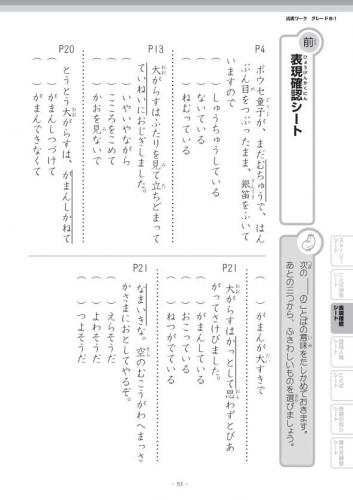 読書ワーク グレードⅢ-1
前
ひょうげんかくにん
表現確認シート
次の――のことばの意味をたしかめておきます。
あとの三つから、ふさわしいものを選びましょう。
P4
ポウセ童子が、まだむちゅうで、はん
ぶん目をつぶったまま、銀笛をふいて
いますので
( ) しゅうちゅうしている
( ) ないている
( ) ねむっている
P13
大がらすはふたりを見て立ちどまって
ていねいにおじぎしました。
( ) いやいやながら
( ) こころをこめて
( ) かおを見ないで
P20
とうとう大がらすは、がまんしかねて
( ) がまんしつづけて
( ) がまんできなくて
( ) がまんが大すきで
P21
大がらすはかっとして思わずとびあ
がってさけびました。
( ) がまんしている
( ) おこっている
( ) ねつがでている
P21
なまいきな。空のむこうがわへまっさ
かさまにおとしてやるぞ。
( ) えらそうだ
( ) よわそうだ
( ) つよそうだ
表現確認
シート
- 53 -